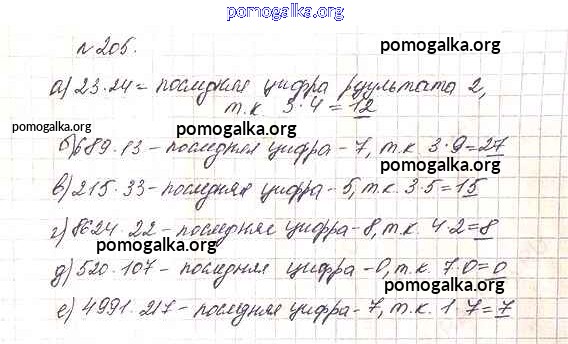 pomogalka.org
№ 205.
pomogalka.org
а) 23·24 = последняя цифра результата 2,
т.к 3·4 = 12
pomogalka.org
pomogalka.org
б) 689·13 - последняя цифра - 7, т.к. 3·9 = 27
pomogalka.org
в) 215·33 - последняя цифра - 5, т.к. 3·5 = 15
г) 8624·22 - последняя цифра - 8, т.к. 4·2 = 8
pomogalka.org
д) 520·107 - последняя цифра - 0, т.к. 7·0 = 0
pomogalka.org
е) 4991·217 - последняя цифра - 7, т.к. 1·7 = 7
pomogalka.org